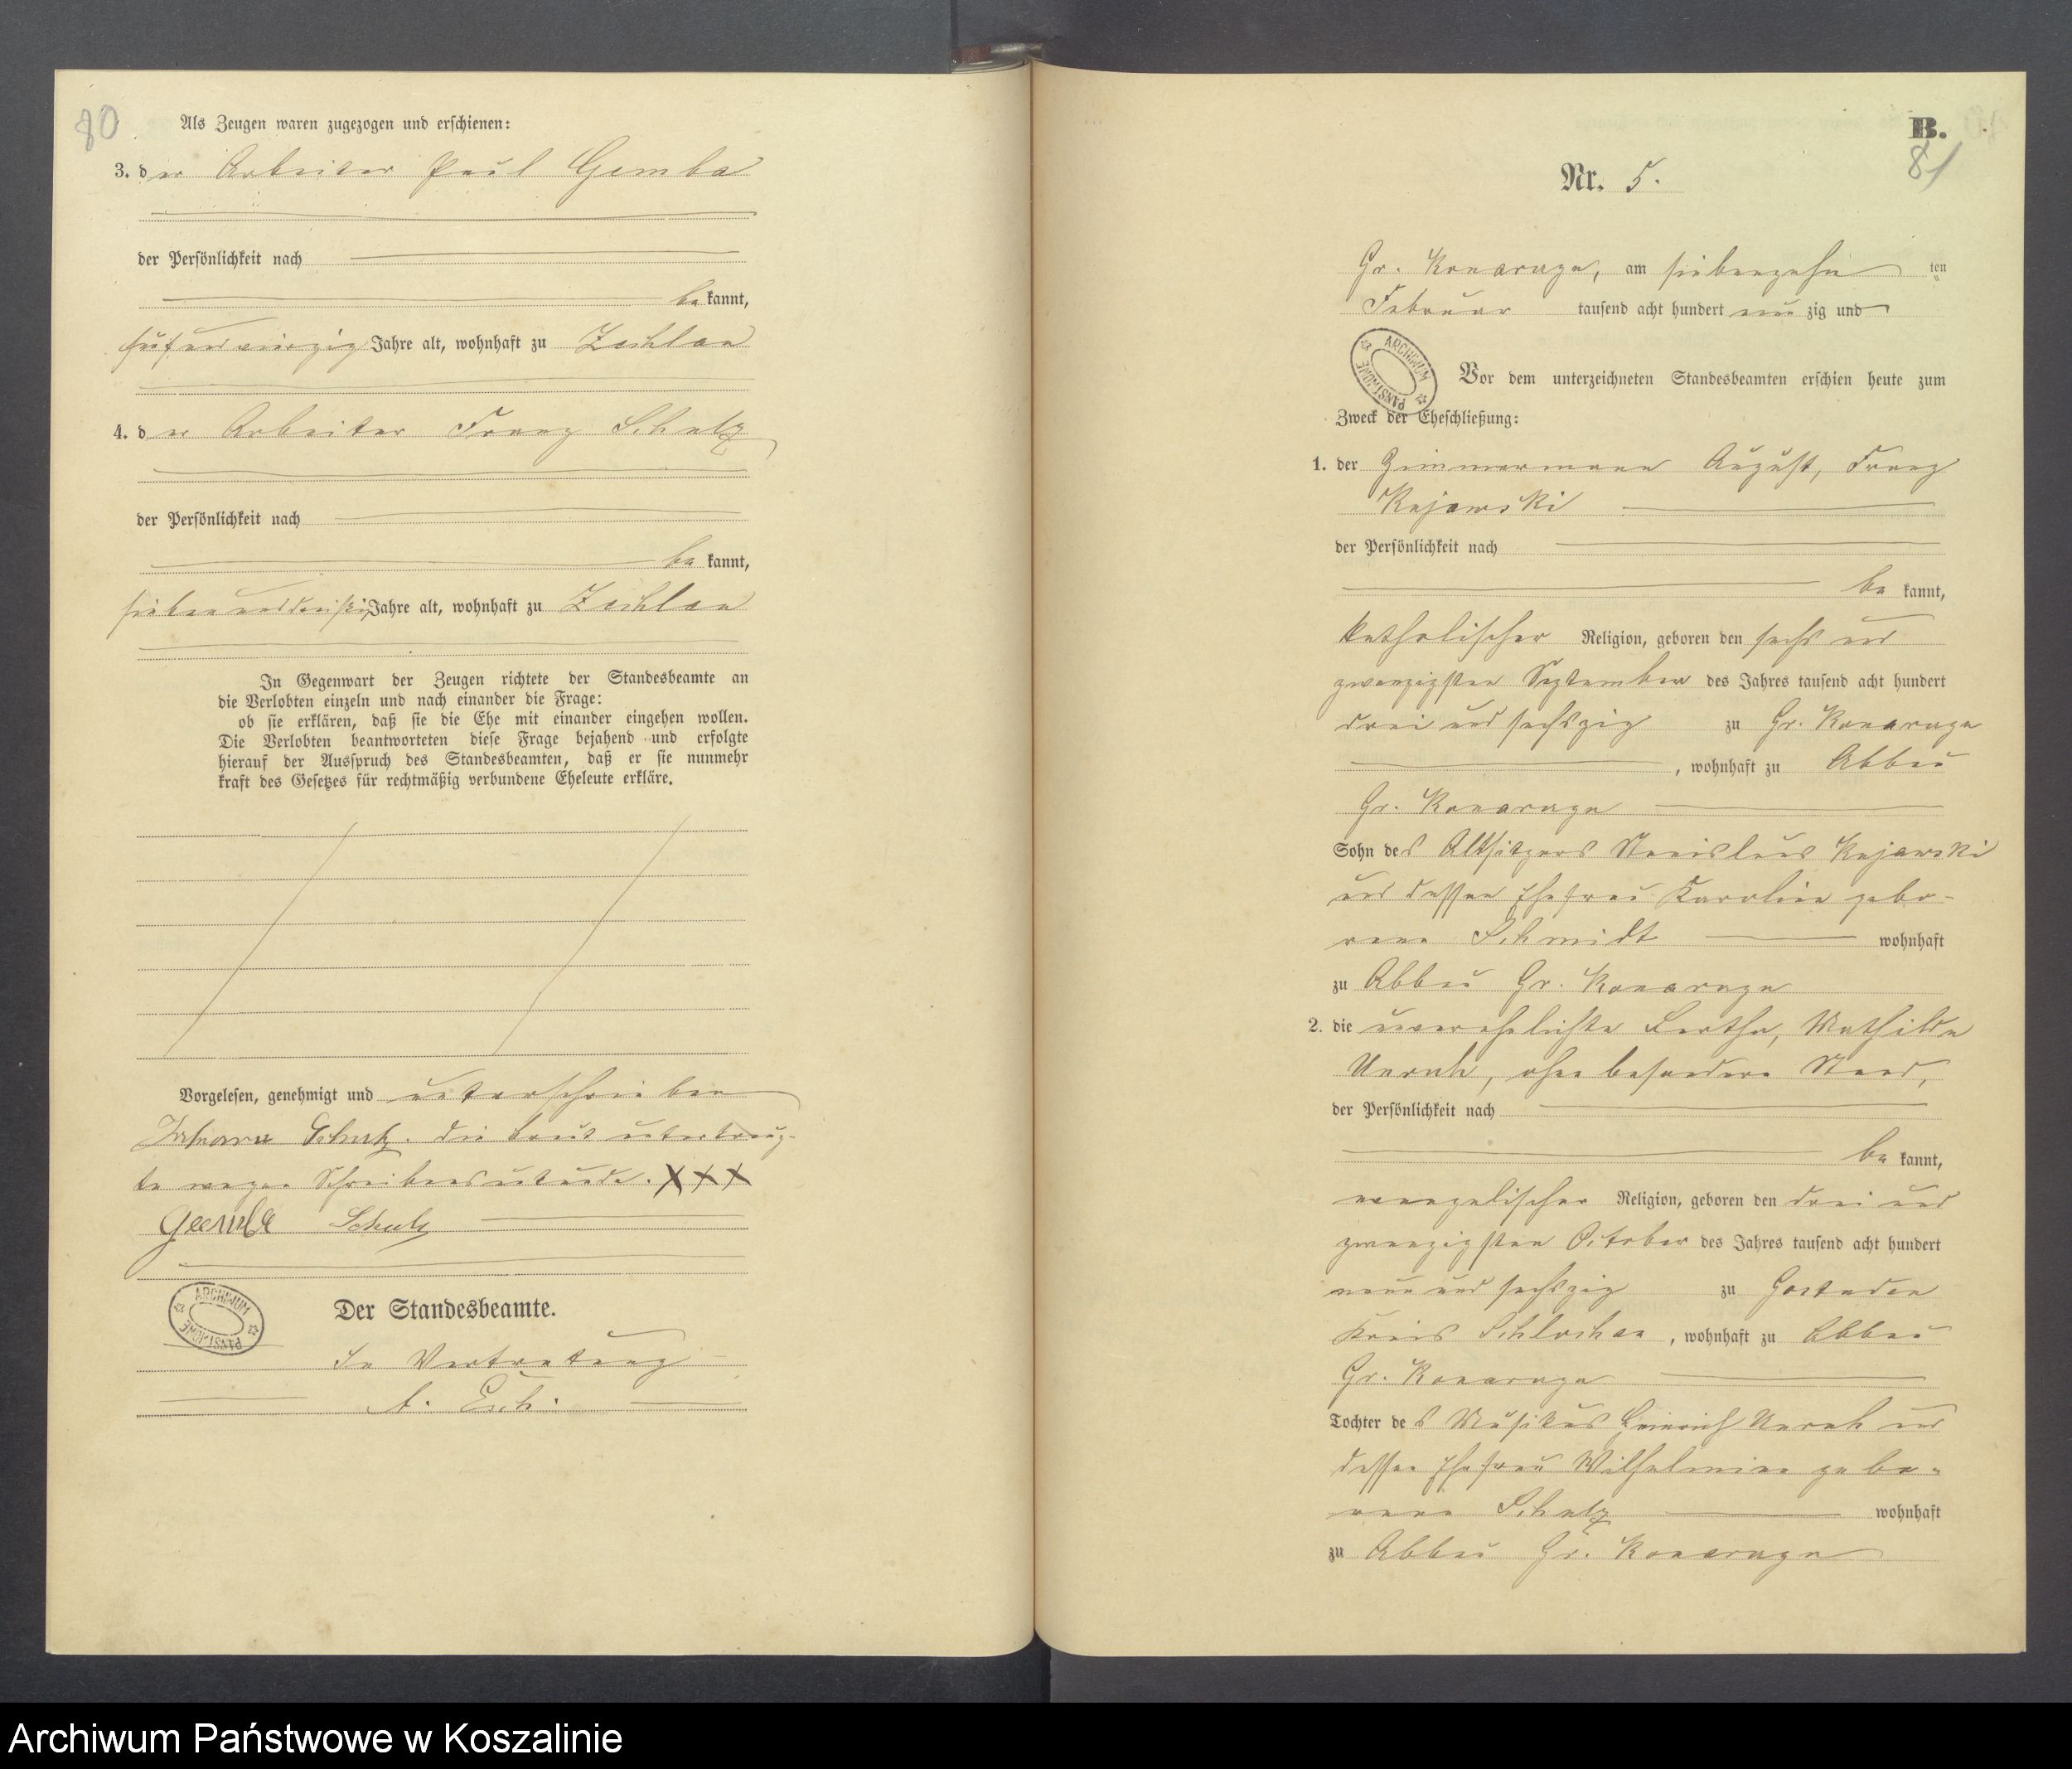 80
Als Zeugen waren zugezogen und erschienen:
3. der Arbeiter Paul Gemba
der Persönlichkeit nach
bekannt,
fünfundvierzig Jahre alt, wohnhaft zu Zechlau
4. der Arbeiter Franz Schulz
der Persönlichkeit nach
bekannt,
siebenunddreißig Jahre alt, wohnhaft zu Zechlau
In Gegenwart der Zeugen richtete der Standesbeamte an
die Verlobten einzeln und nach einander die Frage:
ob sie erklären, daß sie die Ehe mit einander eingehen wollen.
Die Verlobten beantworteten diese Frage bejahend und erfolgte
hierauf der Ausspruch des Standesbeamten, daß er sie nunmehr
kraft des Gesetzes für rechtmäßig verbundene Eheleute erkläre.
Vorgelesen, genehmigt und unterschrieben
Johann Schulz. Die Braut unterkreuz-
te wegen Schreibensunkunde. XXX
Gemba Schulz
ARCHIWUM PAŃSTWOWE
Der Standesbeamte.
In Vertretung
A. Esch.
B.
81
Nr. 5.
Gr. Konarczyn, am siebenzehn ten
Februar tausend acht hundert neunzig und
ARCHIWUM PAŃSTWOWE
Vor dem unterzeichneten Standesbeamten erschien heute zum
Zweck der Eheschließung:
1. der Zimmermann August, Franz
Kujawski
der Persönlichkeit nach
bekannt,
katholischer Religion, geboren den sechs und
zwanzigsten September des Jahres tausend acht hundert
drei und sechszig zu Gr. Konarczyn
, wohnhaft zu Abbau
Gr. Konarczyn
Sohn des Altsitzers Stanislaus Kujawski
und dessen Ehefrau Karoline gebo-
rene Schmidt wohnhaft
zu Abbau Gr. Konarczyn
2. die unverehelichte Bertha, Mathilde
Unruh, ohne besondern Stand,
der Persönlichkeit nach
bekannt,
evangelischer Religion, geboren den drei und
zwanzigsten October des Jahres tausend acht hundert
neun und sechszig zu
Kreis Schlochau, wohnhaft zu Abbau
Gr. Konarczyn
Tochter des Musikus Heinrich Unruh und
dessen Ehefrau Wilhelmine gebo-
rene Schulz wohnhaft
zu Abbau Gr. Konarczyn
Archiwum Państwowe w Koszalinie